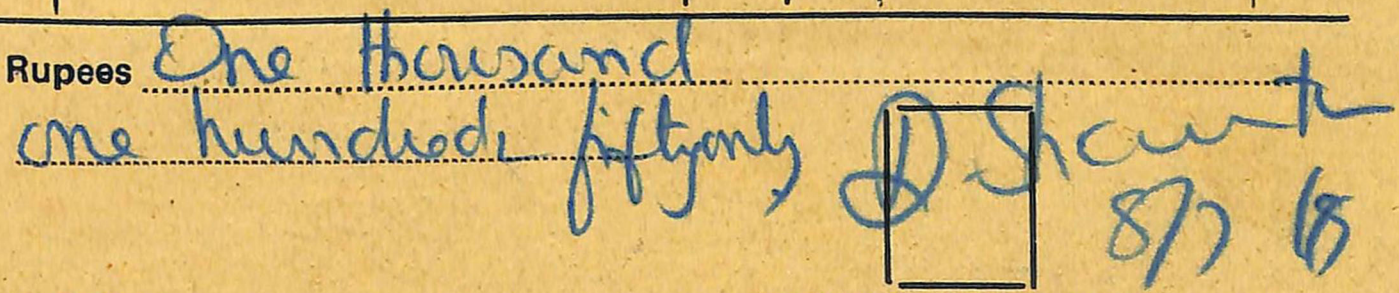 Rupees One thousand
one hundred fifty only
8/7/68